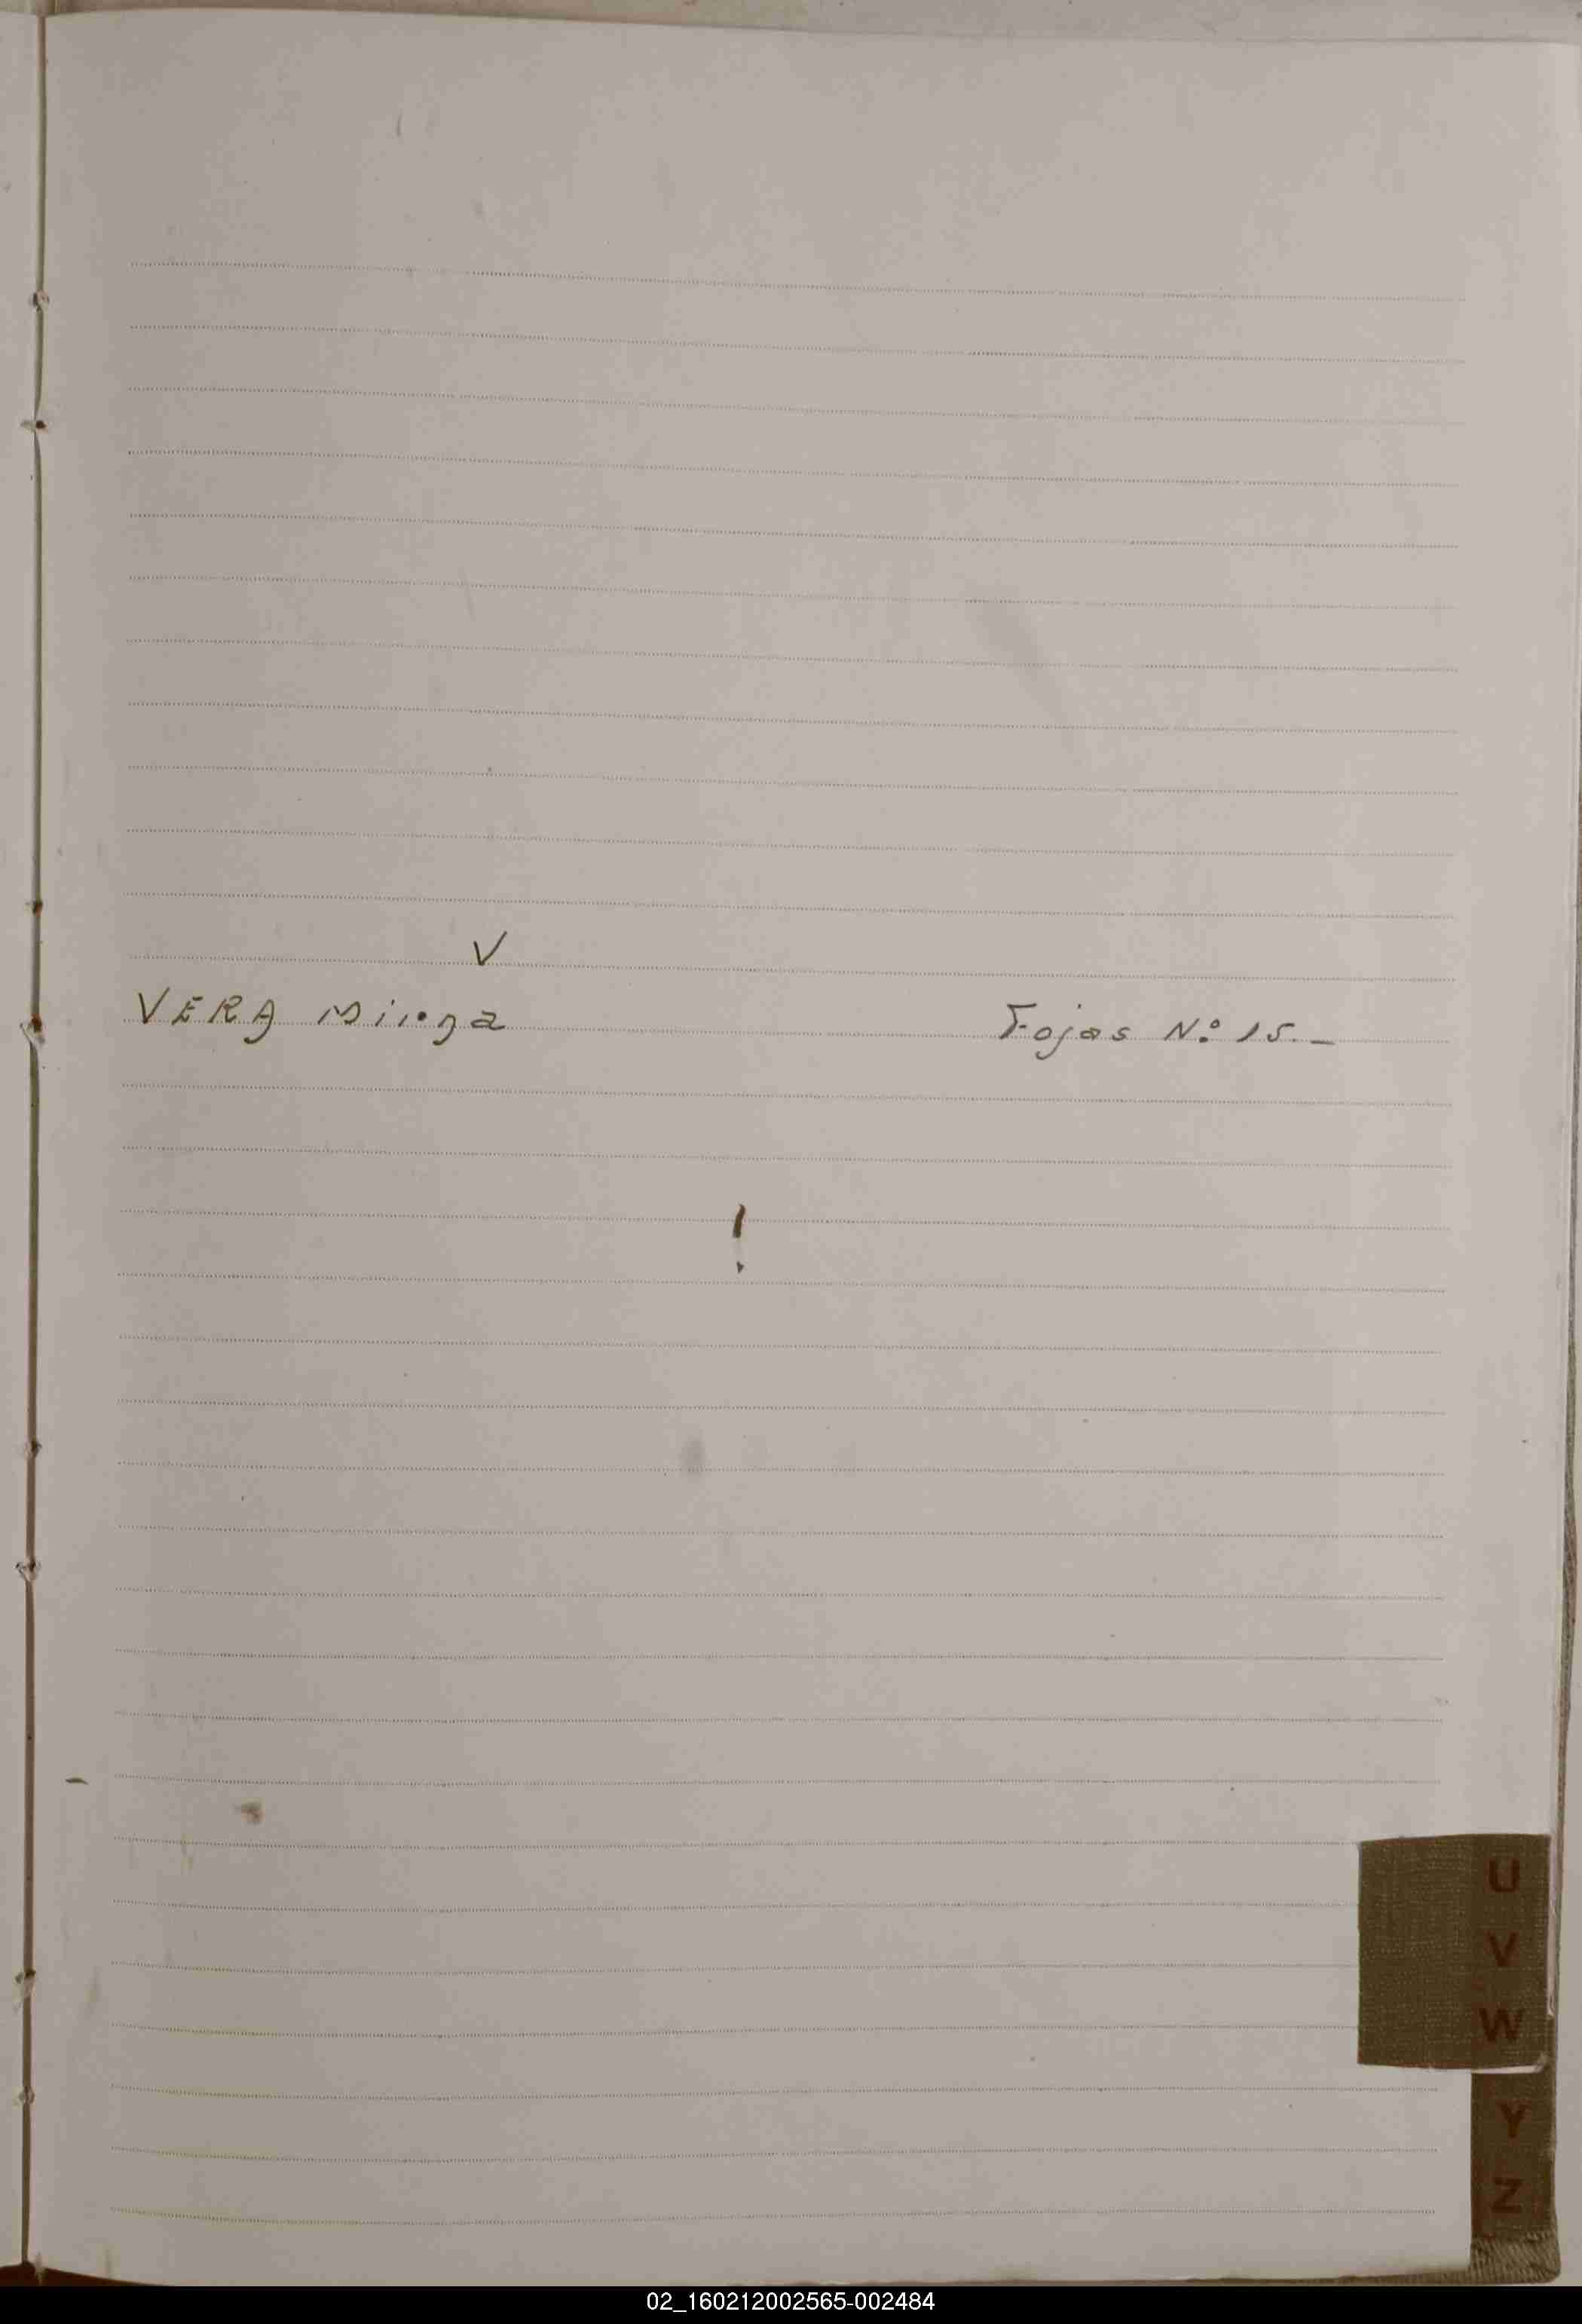 V
VERA Minga
Fojas Nº 15.-
U
V
W
Y
Z
02_160212002565-002484